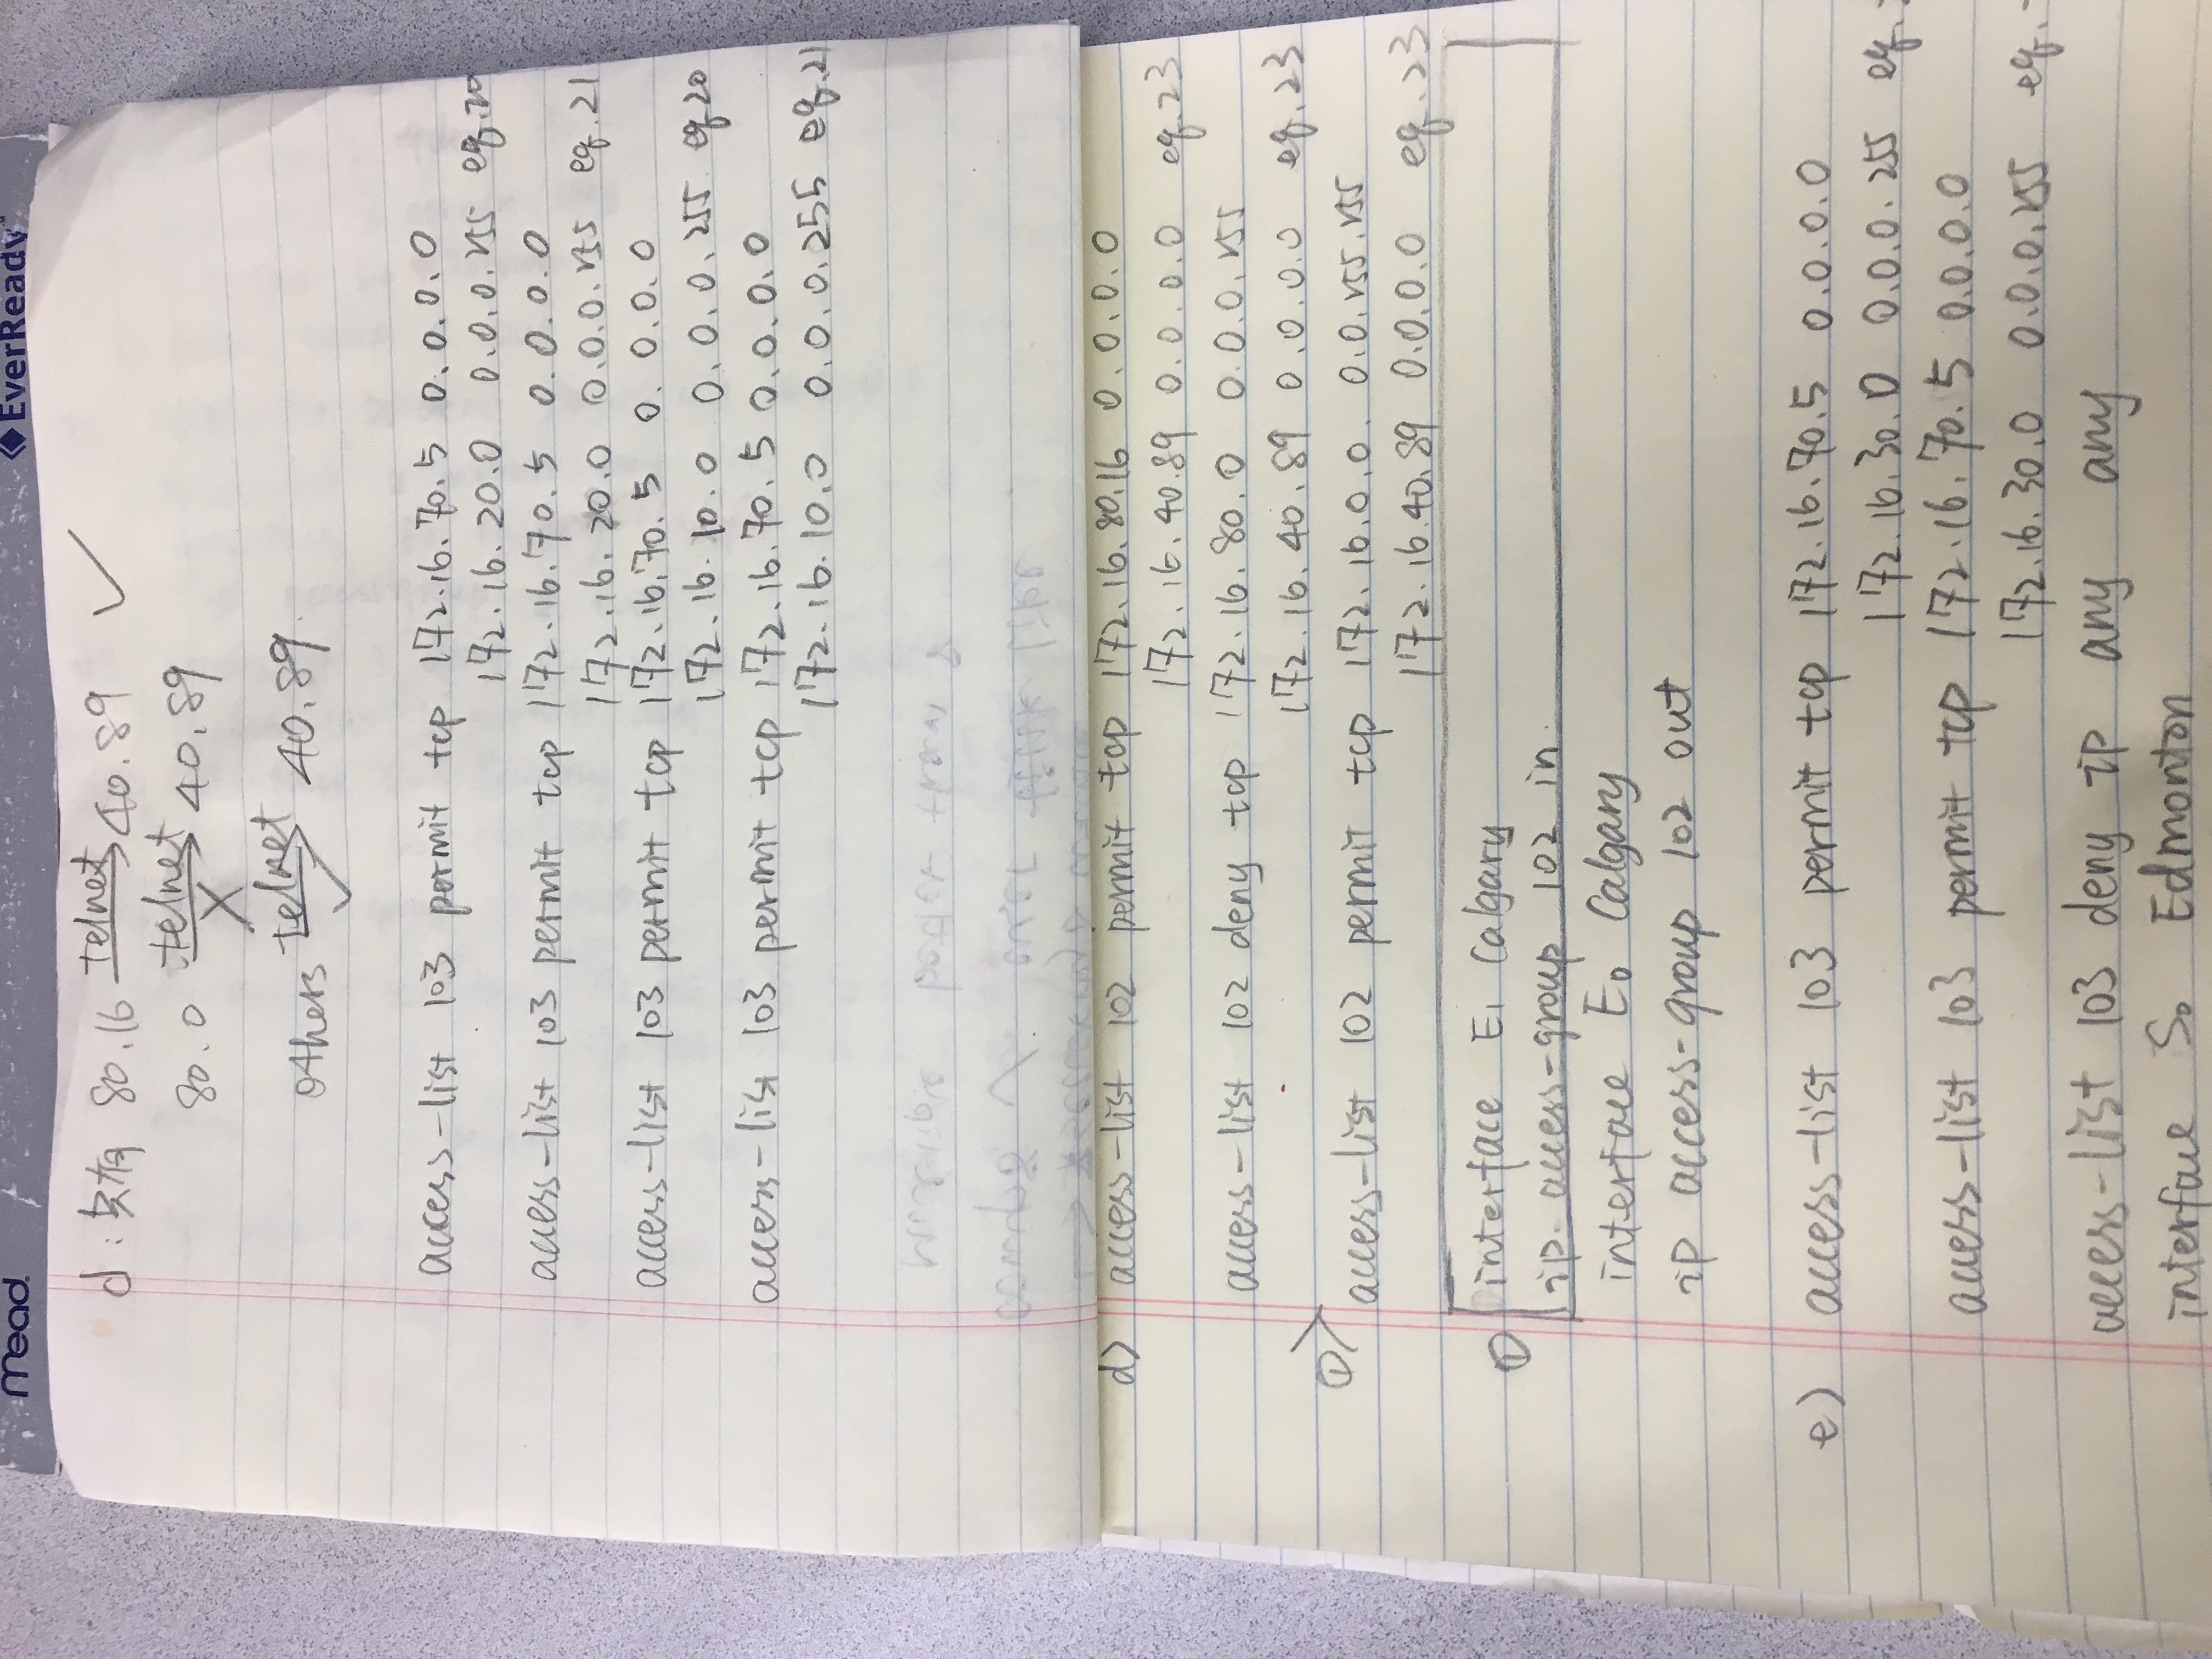 Mead
EverReady
d: 只有 80.16 telnet 40.89 ✓
80.0 telnet X 40.89
others telnet ✓ 40.89.
access-list 103 permit tcp 172.16.70.5 0.0.0.0
172.16.20.0 0.0.0.255 eq.20
access-list 103 permit tcp 172.16.70.5 0.0.0.0
172.16.20.0 0.0.0.255 eq.21
access-list 103 permit tcp 172.16.70.5 0.0.0.0
172.16.10.0 0.0.0.255 eq20
access-list 103 permit tcp 172.16.70.5 0.0.0.0
172.16.10.0 0.0.0.255 eq.21
d) access-list 102 permit tcp 172.16.80.16 0.0.0.0
172.16.40.89 0.0.0.0 eq.23
access-list 102 deny tcp 172.16.80.0 0.0.0.255
172.16.40.89 0.0.0.0 eq.23
① > access-list 102 permit tcp 172.16.0.0. 0.0.255.255
172.16.40.89 0.0.0.0 eq.23
① interface E1 Calgary
ip. access-group 102 in.
interface E0 Calgary
ip access-group 102 out
e) access-list 103 permit tcp 172.16.70.5 0.0.0.0
172.16.30.0 0.0.0.255 eq.
access-list 103 permit tcp 172.16.70.5 0.0.0.0
172.16.30.0 0.0.0.255 eq.
access-list 103 deny ip any any
interface S0 Edmonton